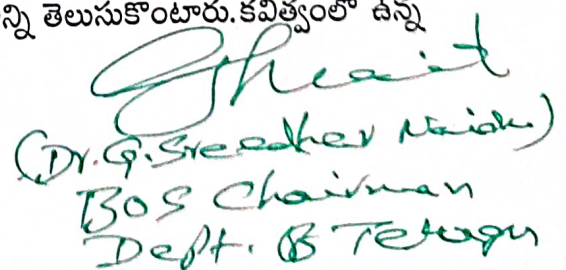 న్ని తెలుసుకొంటారు. కవిత్వంలో ఉన్న
(Dr. G. Sreedher Naidu)
BOS Chairman
Dept. of Telugu